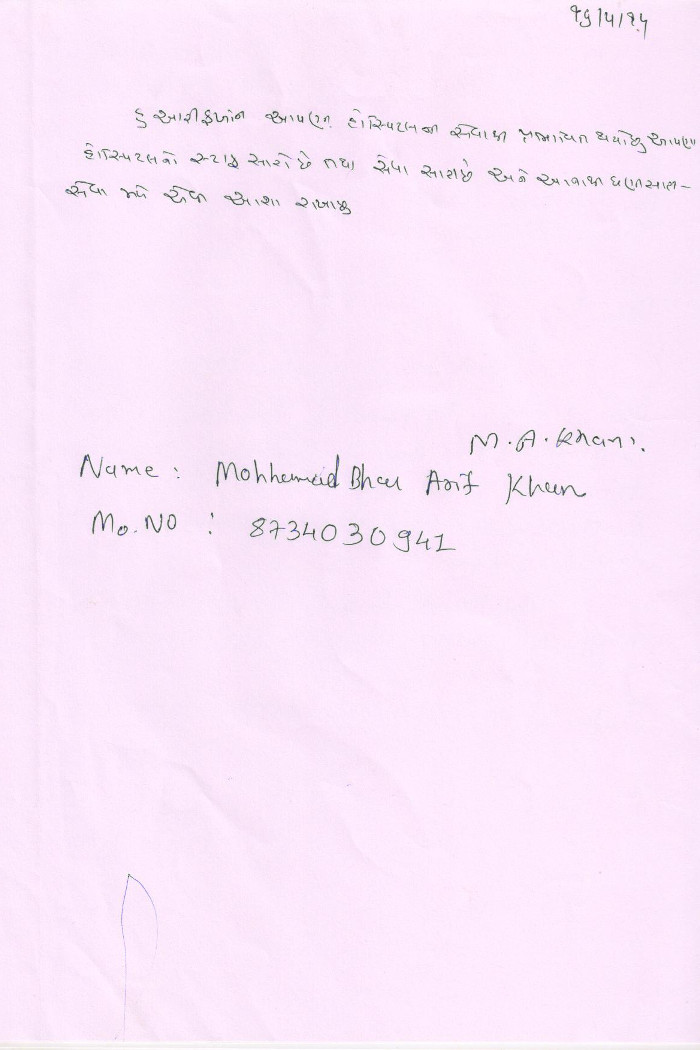 ૧૭/૪/૧૫
હુ આરીફખાન આપણી હોસ્પિટલની સેવાથી પ્રભાવિત થયોછુ આપણી
હોસ્પિટલનો સ્ટાફ સારોછે તથા સેવા સારીછે અને આનાથી ઘણીસારી-
સેવા મળે એવી આશા રાખીછુ
M.A.Khan.
Name : Mohhemaid Bhai Arif Khan
Mo.NO : 8734030941